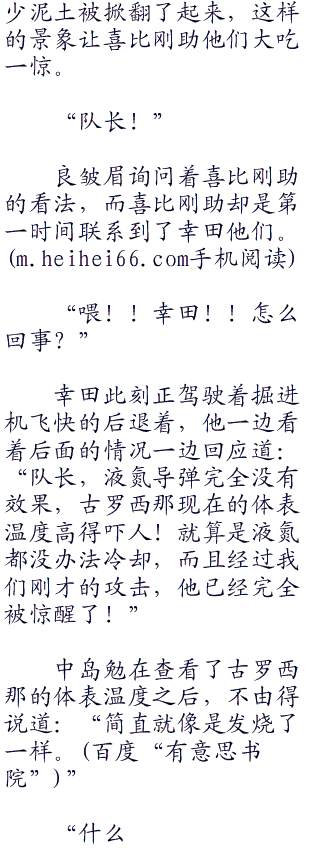 少泥土被掀翻了起来，这样
的景象让喜比刚助他们大吃
一惊。
“队长！”
良皱眉询问着喜比刚助
的看法，而喜比刚助却是第
一时间联系到了幸田他们。
(m.heihei66.com手机阅读)
“喂！！幸田！！怎么
回事？”
幸田此刻正驾驶着掘进
机飞快的后退着，他一边看
着后面的情况一边回应道：
“队长，液氮导弹完全没有
效果，古罗西那现在的体表
温度高得吓人！就算是液氮
都没办法冷却，而且经过我
们刚才的攻击，他已经完全
被惊醒了！”
中岛勉在查看了古罗西
那的体表温度之后，不由得
说道：“简直就像是发烧了
一样。(百度“有意思书
院”)”
“什么